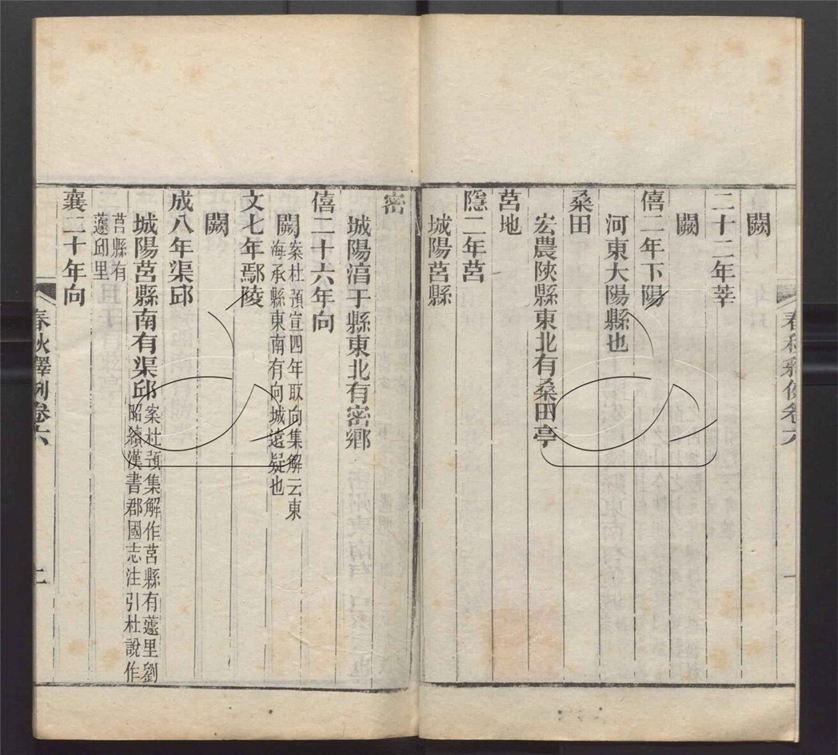 春秋釋例卷六
闕
二十二年莘
闕
僖二年下陽
河東大陽縣也
桑田
宏農陝縣東北有桑田亭
莒地
隱二年莒
城陽莒縣
密
城陽淳于縣東北有密鄉
僖二十六年向
闕案杜預宣四年取向集解云東
海承縣東南有向城遠疑也
文七年鄢陵
闕
成八年渠邱
城陽莒縣南有渠邱案杜預集解作莒縣有蘧里劉
昭續漢書郡國志注引杜說作
莒縣有
蘧邱里
襄二十年向
春秋釋例卷六